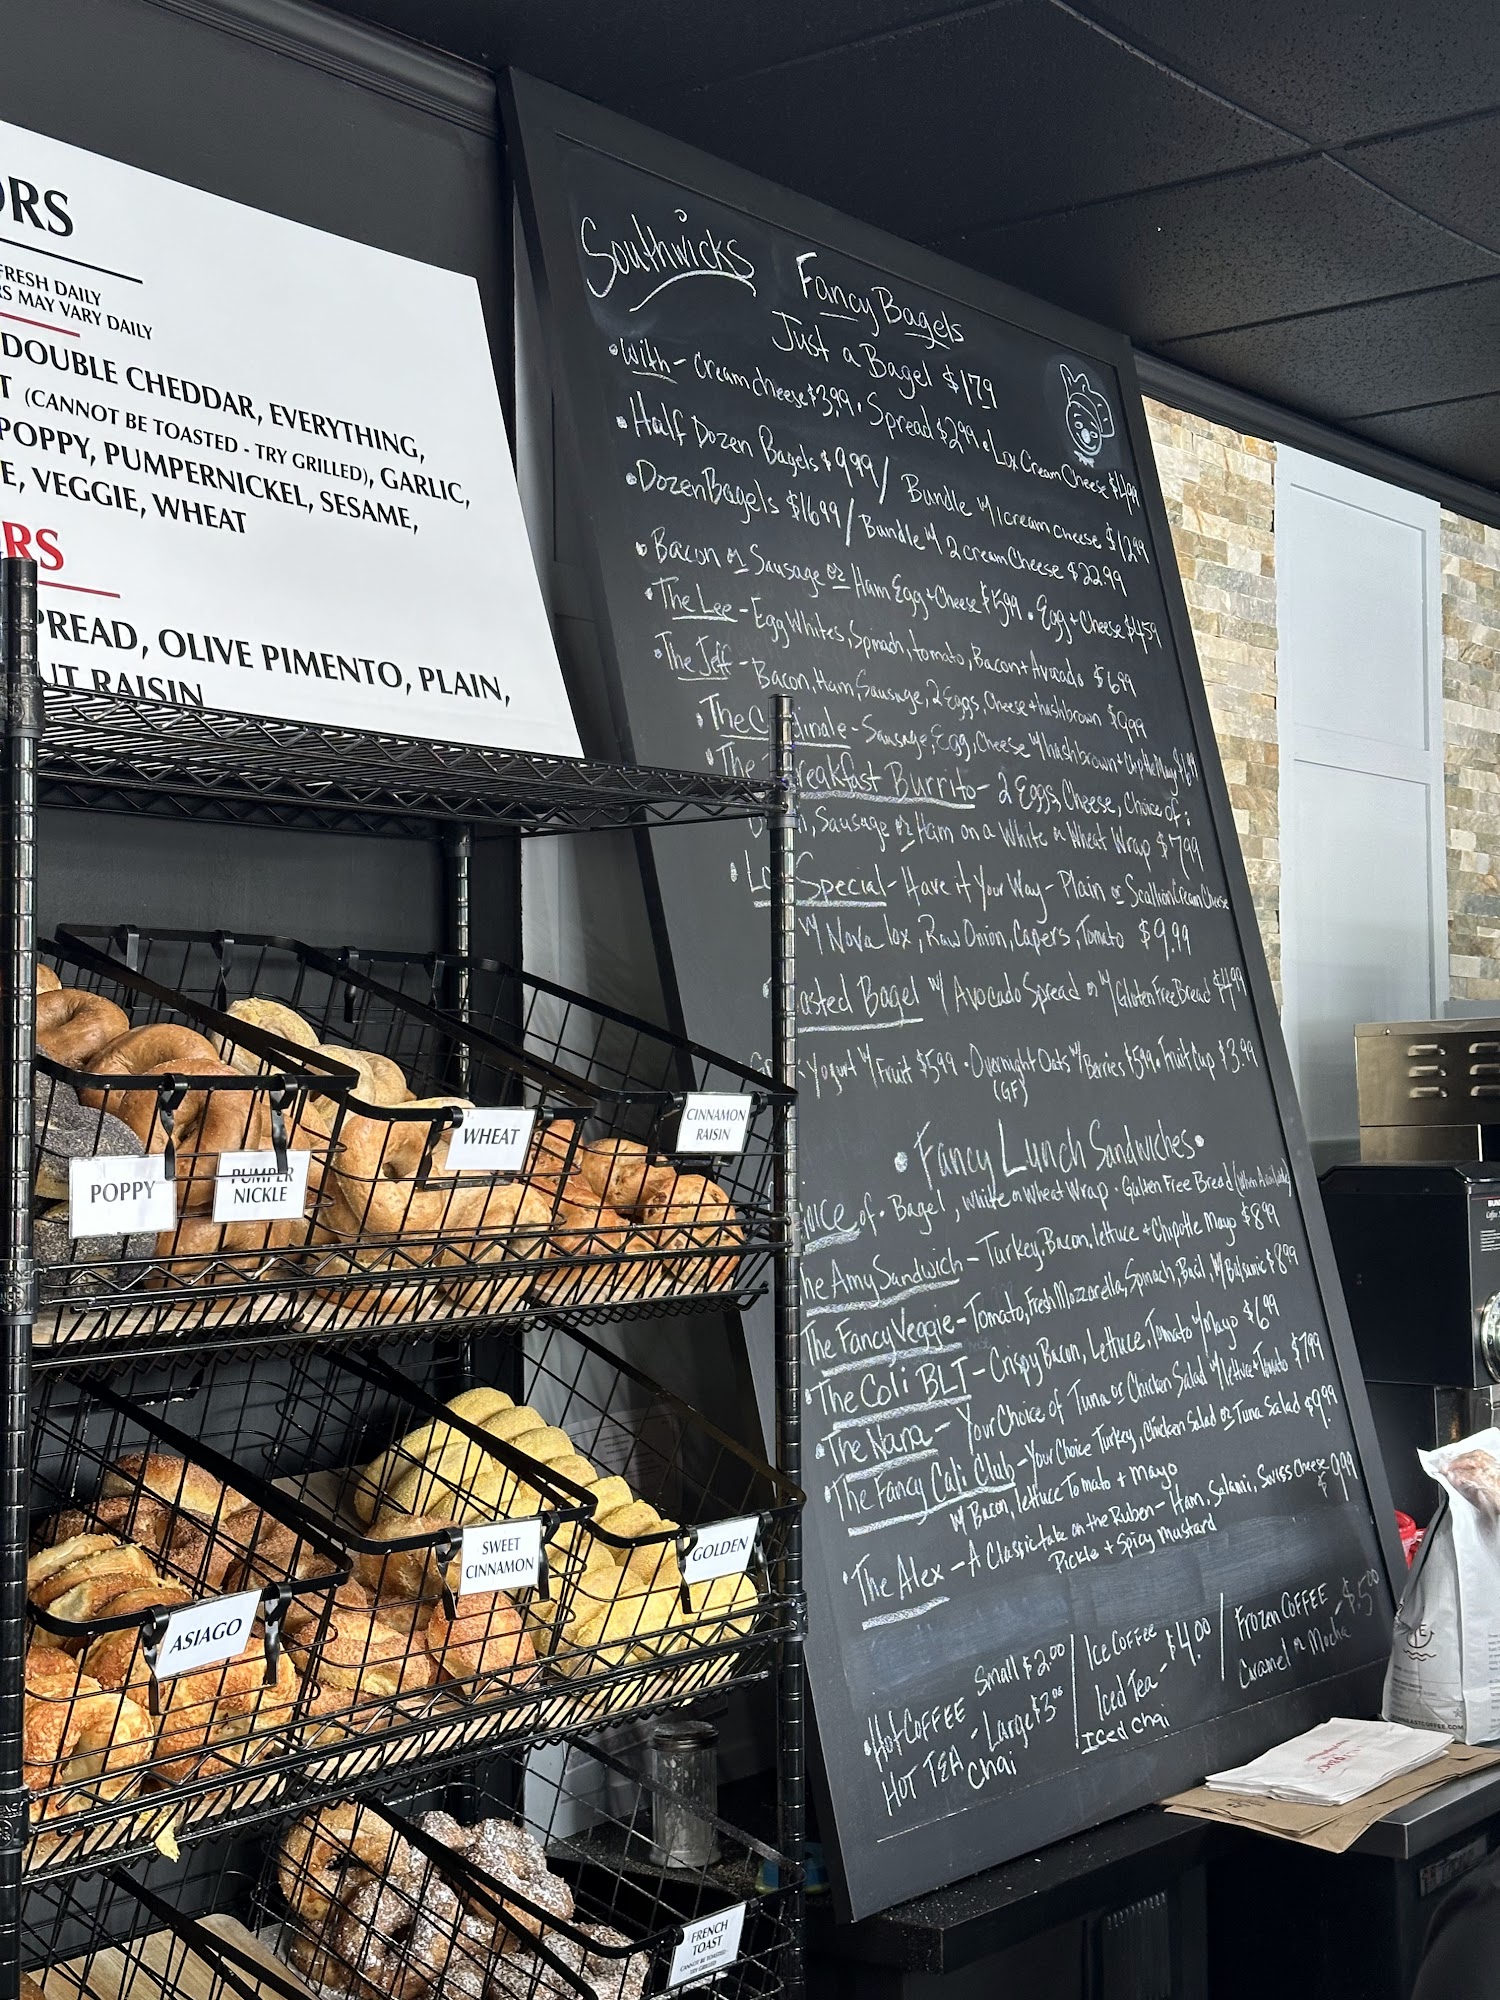 ORS
FRESH DAILY
RS MAY VARY DAILY
DOUBLE CHEDDAR, EVERYTHING,
T (CANNOT BE TOASTED - TRY GRILLED), GARLIC,
POPPY, PUMPERNICKEL, SESAME,
E, VEGGIE, WHEAT
RS
PREAD, OLIVE PIMENTO, PLAIN,
UT RAISIN
Southwicks Fancy Bagels
Just a Bagel $1.79
• With - Cream cheese $3.99 • Spread $2.99 • Lox Cream Cheese $4.99
• Half Dozen Bagels $9.99 / Bundle w/ 1 cream cheese $12.99
• Dozen Bagels $16.99 / Bundle w/ 2 cream Cheese $22.99
• Bacon or Sausage or Ham Egg + Cheese $5.99 • Egg + Cheese $4.59
• The Lee - Egg Whites, Spinach, tomato, Bacon + Avocado $6.99
• The Jeff - Bacon, Ham, Sausage, 2 Eggs, Cheese + hashbrown $9.99
• The C dinale - Sausage, Egg, Cheese w/ hashbrown + Chipotle Mayo
• The reakfast Burrito - 2 Eggs, Cheese, Choice of:
n, Sausage or Ham on a White or Wheat Wrap $7.99
• Lo Special - Have it Your Way - Plain or Scallion Cream Cheese
w/ Nova lox, Raw Onion, Capers, Tomato $9.99
asted Bagel w/ Avocado Spread or w/ Gluten Free Bread $4.99
Yogurt w/ Fruit $5.99 • Overnight Oats w/ Berries $5.99 • Fruit Cup $3.99
(GF)
• Fancy Lunch Sandwiches •
oice of • Bagel, white or Wheat Wrap • Gluten Free Bread (When Available)
he Amy Sandwich - Turkey, Bacon, lettuce + Chipotle Mayo $8.99
The Fancy Veggie - Tomato, Fresh Mozzarella, Spinach, Basil, w/ Balsamic $8.99
• The Coli BLT - Crispy Bacon, Lettuce, Tomato w/ Mayo $6.99
• The Nana - Your Choice of Tuna or Chicken Salad w/ lettuce + Tomato $7.99
• The Fancy Cali Club - Your Choice Turkey, Chicken Salad or Tuna Salad $9.99
w/ Bacon, lettuce Tomato + Mayo
• The Alex - A Classic take on the Ruben - Ham, Salami, Swiss Cheese $9.99
Pickle + Spicy Mustard
• Hot COFFEE Small $2.00 / Ice Coffee / Frozen COFFEE - $5.00
HOT TEA - Large $3.00 Iced Tea - $4.00 Caramel or Mocha
Chai Iced Chai
POPPY
PUMPER
NICKLE
WHEAT
CINNAMON
RAISIN
ASIAGO
SWEET
CINNAMON
GOLDEN
FRENCH
TOAST
CANNOT BE TOASTED
TRY GRILLED